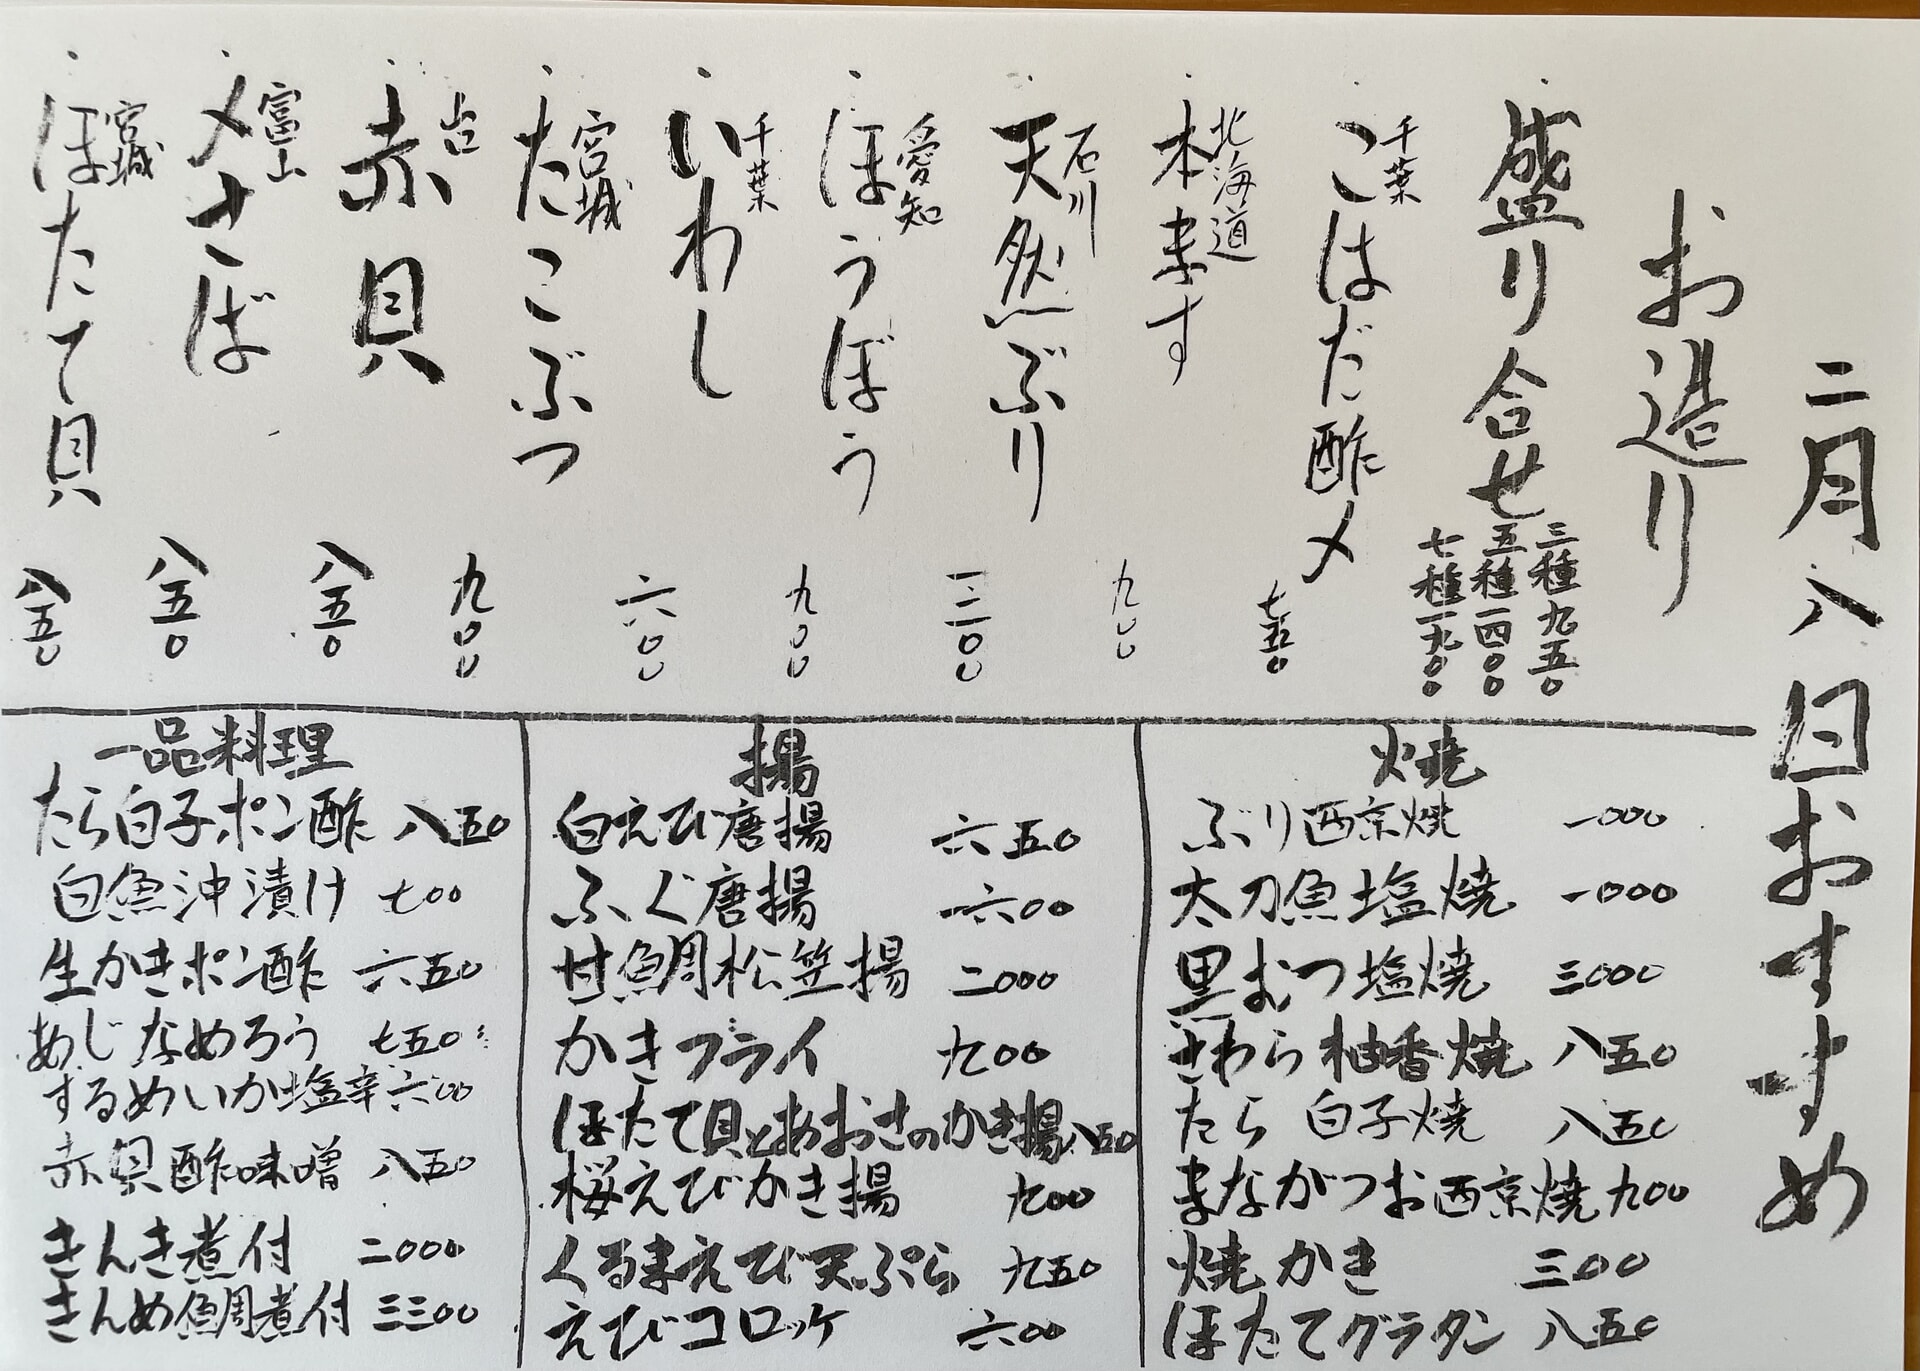 二月八日おすすめ
お造り
盛り合せ
三種九五〇
五種一四〇〇
七種一九〇〇
千葉
こはだ酢〆 七五〇
北海道
本ます 九〇〇
石川
天然ぶり 一二〇〇
愛知
ほうぼう 九〇〇
千葉
いわし 六〇〇
宮城
たこぶつ 九〇〇
山口
赤貝 八五〇
富山
〆さば 八五〇
宮城
ほたて貝 八五〇
焼
ぶり西京焼 一〇〇〇
太刀魚塩焼 一〇〇〇
黒むつ塩焼 三〇〇〇
さわら柚香焼 八五〇
たら白子焼 八五〇
まながつお西京焼 九〇〇
焼かき 三〇〇
ほたてグラタン 八五〇
揚
白えび唐揚 六五〇
ふぐ唐揚 六〇〇
甘鯛松笠揚 二〇〇〇
かきフライ 九〇〇
ほたて貝とあおさのかき揚 八五〇
桜えびかき揚 九〇〇
くるまえび天ぷら 九五〇
えびコロッケ 六〇〇
一品料理
たら白子ポン酢 八五〇
白魚沖漬け 七〇〇
生かきポン酢 六五〇
あじなめろう 七五〇
するめいか塩辛 六〇〇
赤貝酢味噌 八五〇
きんき煮付 二〇〇〇
きんめ鯛煮付 三三〇〇